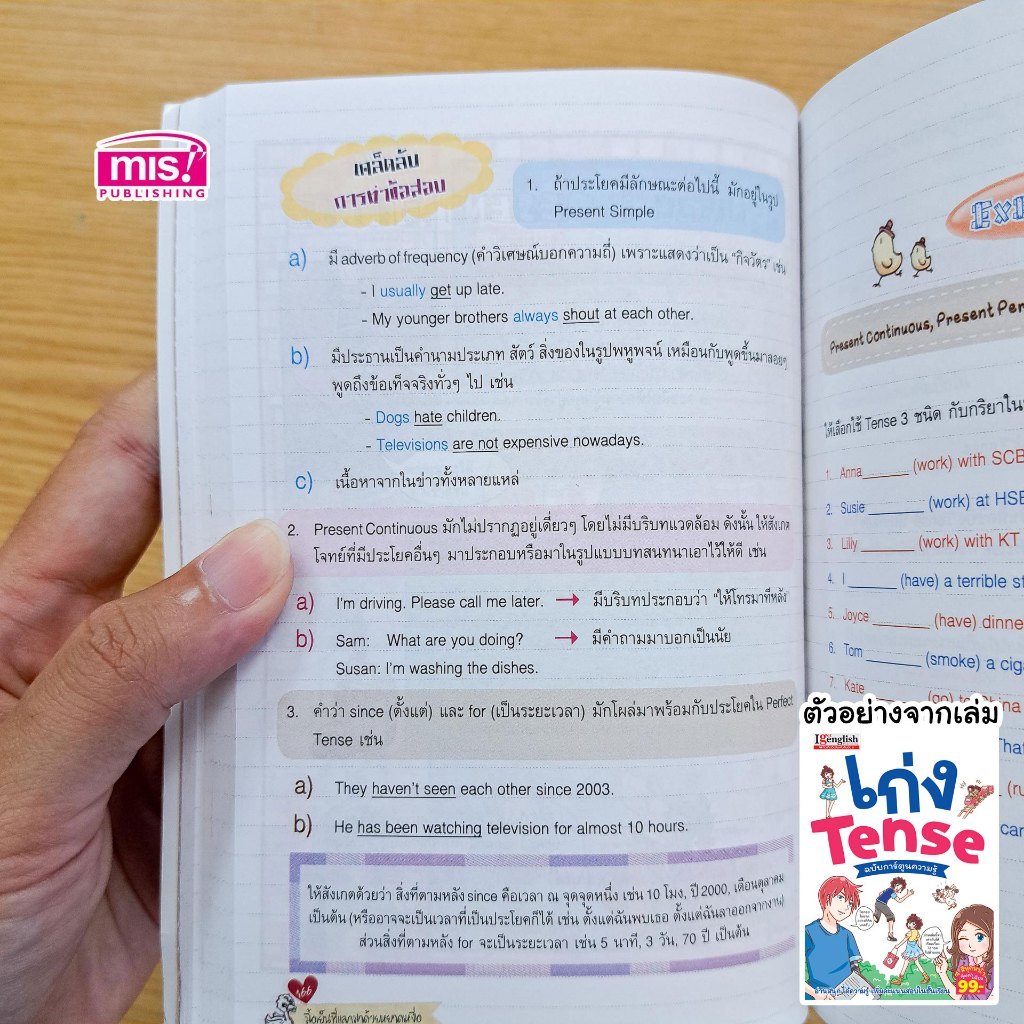 mis!
PUBLISHING
เคล็ดลับ
การทำข้อสอบ
1. ถ้าประโยคมีลักษณะต่อไปนี้ มักอยู่ในรูป
Present Simple
a) มี adverb of frequency (คำวิเศษณ์บอกความถี่) เพราะแสดงว่าเป็น "กิจวัตร" เช่น
- I usually get up late.
- My younger brothers always shout at each other.
b) มีประธานเป็นคำนามประเภท สัตว์ สิ่งของในรูปพหูพจน์ เหมือนกับพูดขึ้นมาลอยๆ
พูดถึงข้อเท็จจริงทั่วๆ ไป เช่น
- Dogs hate children.
- Televisions are not expensive nowadays.
c) เนื้อหาจากในข่าวทั้งหลายแหล่
2. Present Continuous มักไม่ปรากฏอยู่เดี่ยวๆ โดยไม่มีบริบทแวดล้อม ดังนั้น ให้สังเกต
โจทย์ที่มีประโยคอื่นๆ มาประกอบหรือมาในรูปแบบบทสนทนาเอาไว้ให้ดี เช่น
a) I'm driving. Please call me later. → มีบริบทประกอบว่า "ให้โทรมาทีหลัง"
b) Sam: What are you doing? → มีคำถามมาบอกเป็นนัย
Susan: I'm washing the dishes.
3. คำว่า since (ตั้งแต่) และ for (เป็นระยะเวลา) มักโผล่มาพร้อมกับประโยคใน Perfect
Tense เช่น
a) They haven't seen each other since 2003.
b) He has been watching television for almost 10 hours.
ให้สังเกตด้วยว่า สิ่งที่ตามหลัง since คือเวลา ณ จุดจุดหนึ่ง เช่น 10 โมง, ปี 2000, เดือนตุลาคม
เป็นต้น (หรืออาจจะเป็นเวลาที่เป็นประโยคก็ได้ เช่น ตั้งแต่ฉันพบเธอ ตั้งแต่ฉันลาออกจากงาน)
ส่วนสิ่งที่ตามหลัง for จะเป็นระยะเวลา เช่น 5 นาที, 3 วัน, 70 ปี เป็นต้น
166
Present Continuous, Present Per
ให้เลือกใช้ Tense 3 ชนิด กับกริยาใน
1. Anna______ (work) with SCB
2. Susie ______ (work) at HSB
3. Lilly ______ (work) with KT
4. I ______ (have) a terrible st
5. Joyce ______ (have) dinne
6. Tom ______ (smoke) a ciga
7. Kate ______ (go) to China
ตัวอย่างจากเล่ม
english
เก่ง
Tense
ฉบับการ์ตูนความรู้
99.-